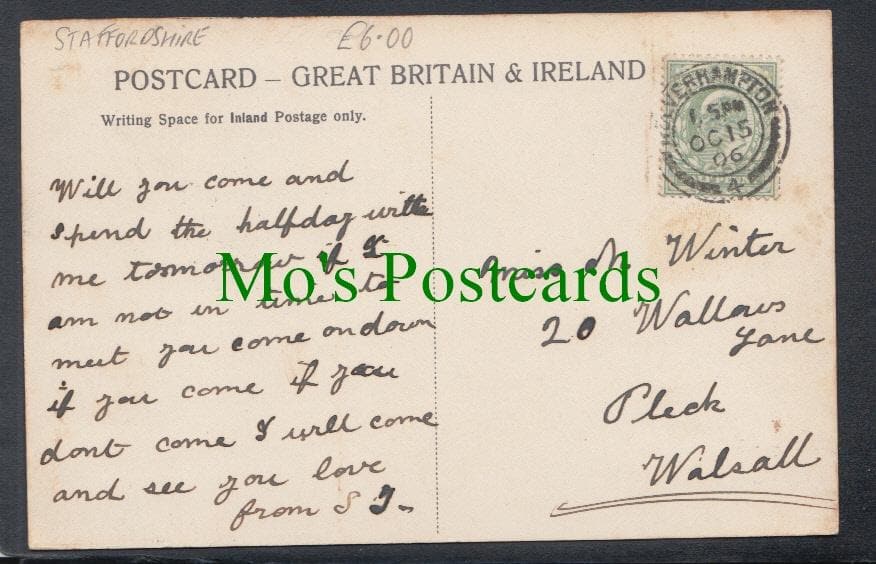 STAFFORDSHIRE £6.00
POSTCARD – GREAT BRITAIN & IRELAND
Writing Space for Inland Postage only.
WOLVERHAMPTON
1.5PM
OC 15
06
4
Will you come and
spend the halfday with
me tomorrow if I
am not in time to
meet you come on down
if you come if you
dont come I will come
and see you love
from S J-
Mo's Postcards
Miss M. Winter
20 Wallows
Lane
Pleck
Walsall